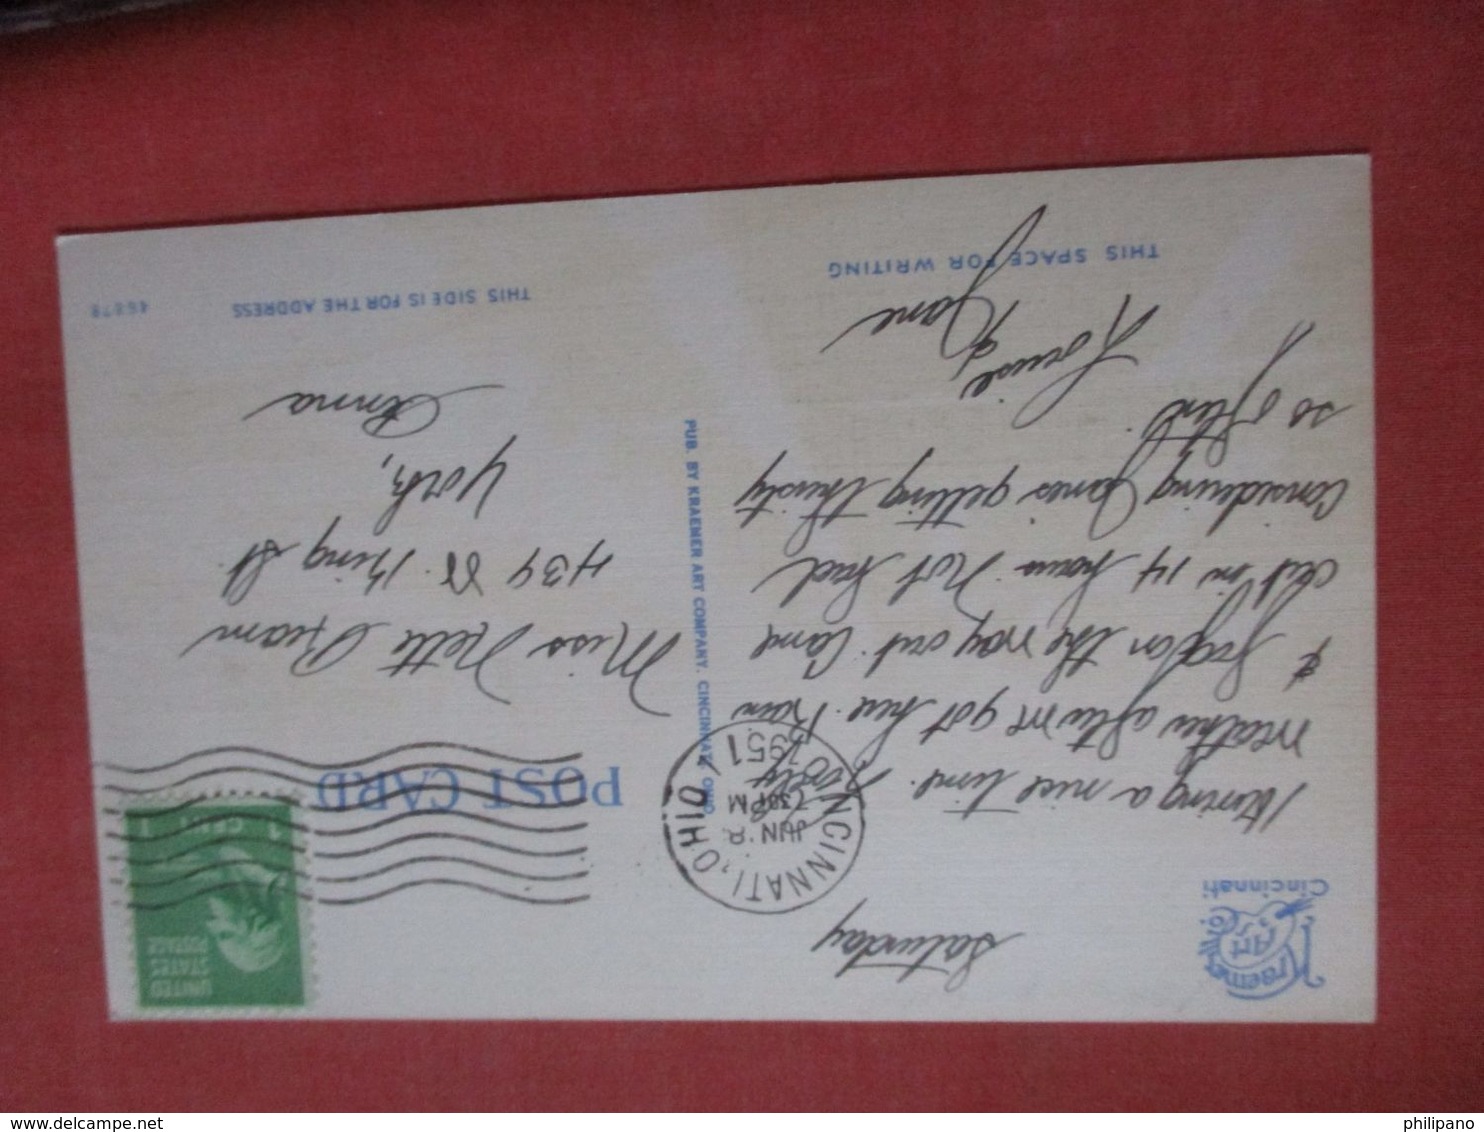 Kraemer
Art
Co.
Cincinnati
Saturday
Having a nice time. Lovely
weather after we got here. Rain
& fog on the way out. Came
out in 14 hours. Not bad
Considering Janes getting thirsty
so often.
Louise
& Jane
THIS SPACE FOR WRITING
CINCINNATI, OHIO
JUN 9
730 PM
1951
PUB. BY KRAEMER ART COMPANY, CINCINNATI, OHIO
POST CARD
UNITED
STATES
POSTAGE
1 CENT 1
Miss Nette
439 W. King St
York,
Penna
THIS SIDE IS FOR THE ADDRESS
46878
delcampe.net
philipano